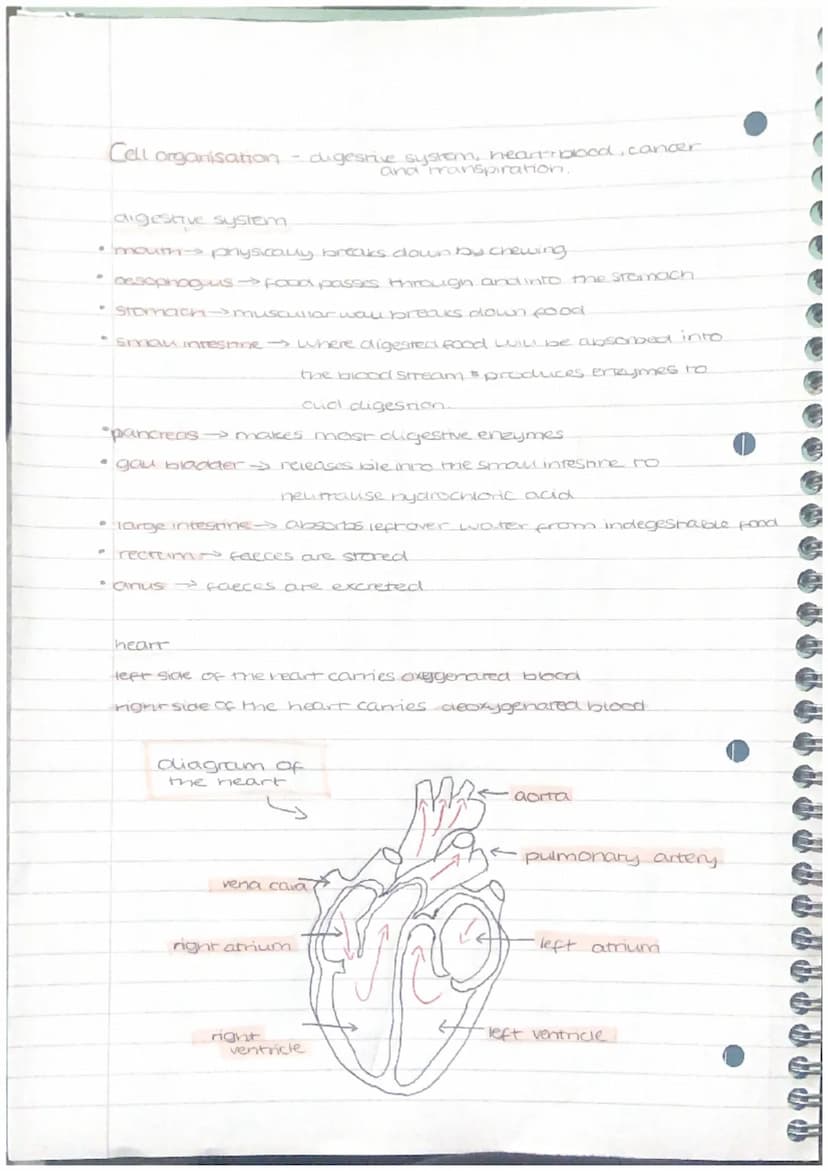 Cell organisation - digestive system, heart+blood, cancer
and transpiration.
digestive system
• mouth → physically breaks down by chewing
• oesophogus → food passes through and into the stomach
• stomach → muscular wall breaks down food
• small intestine → where digested food will be absorbed into
the blood stream • produces enzymes to
aid digestion.
• pancreas → makes most digestive enzymes
• gall bladder → releases bile into the small intestine to
neutralise hydrochloric acid
• large intestine → absorbs leftover water from indegestable food
• rectum → faeces are stored
• anus → faeces are excreted
heart
left side of the heart carries oxygenated blood
right side of the heart carries deoxygenated blood
diagram of
the heart
aorta
pulmonary artery
vena cava
right atrium
left atrium
right
ventricle
left ventricle